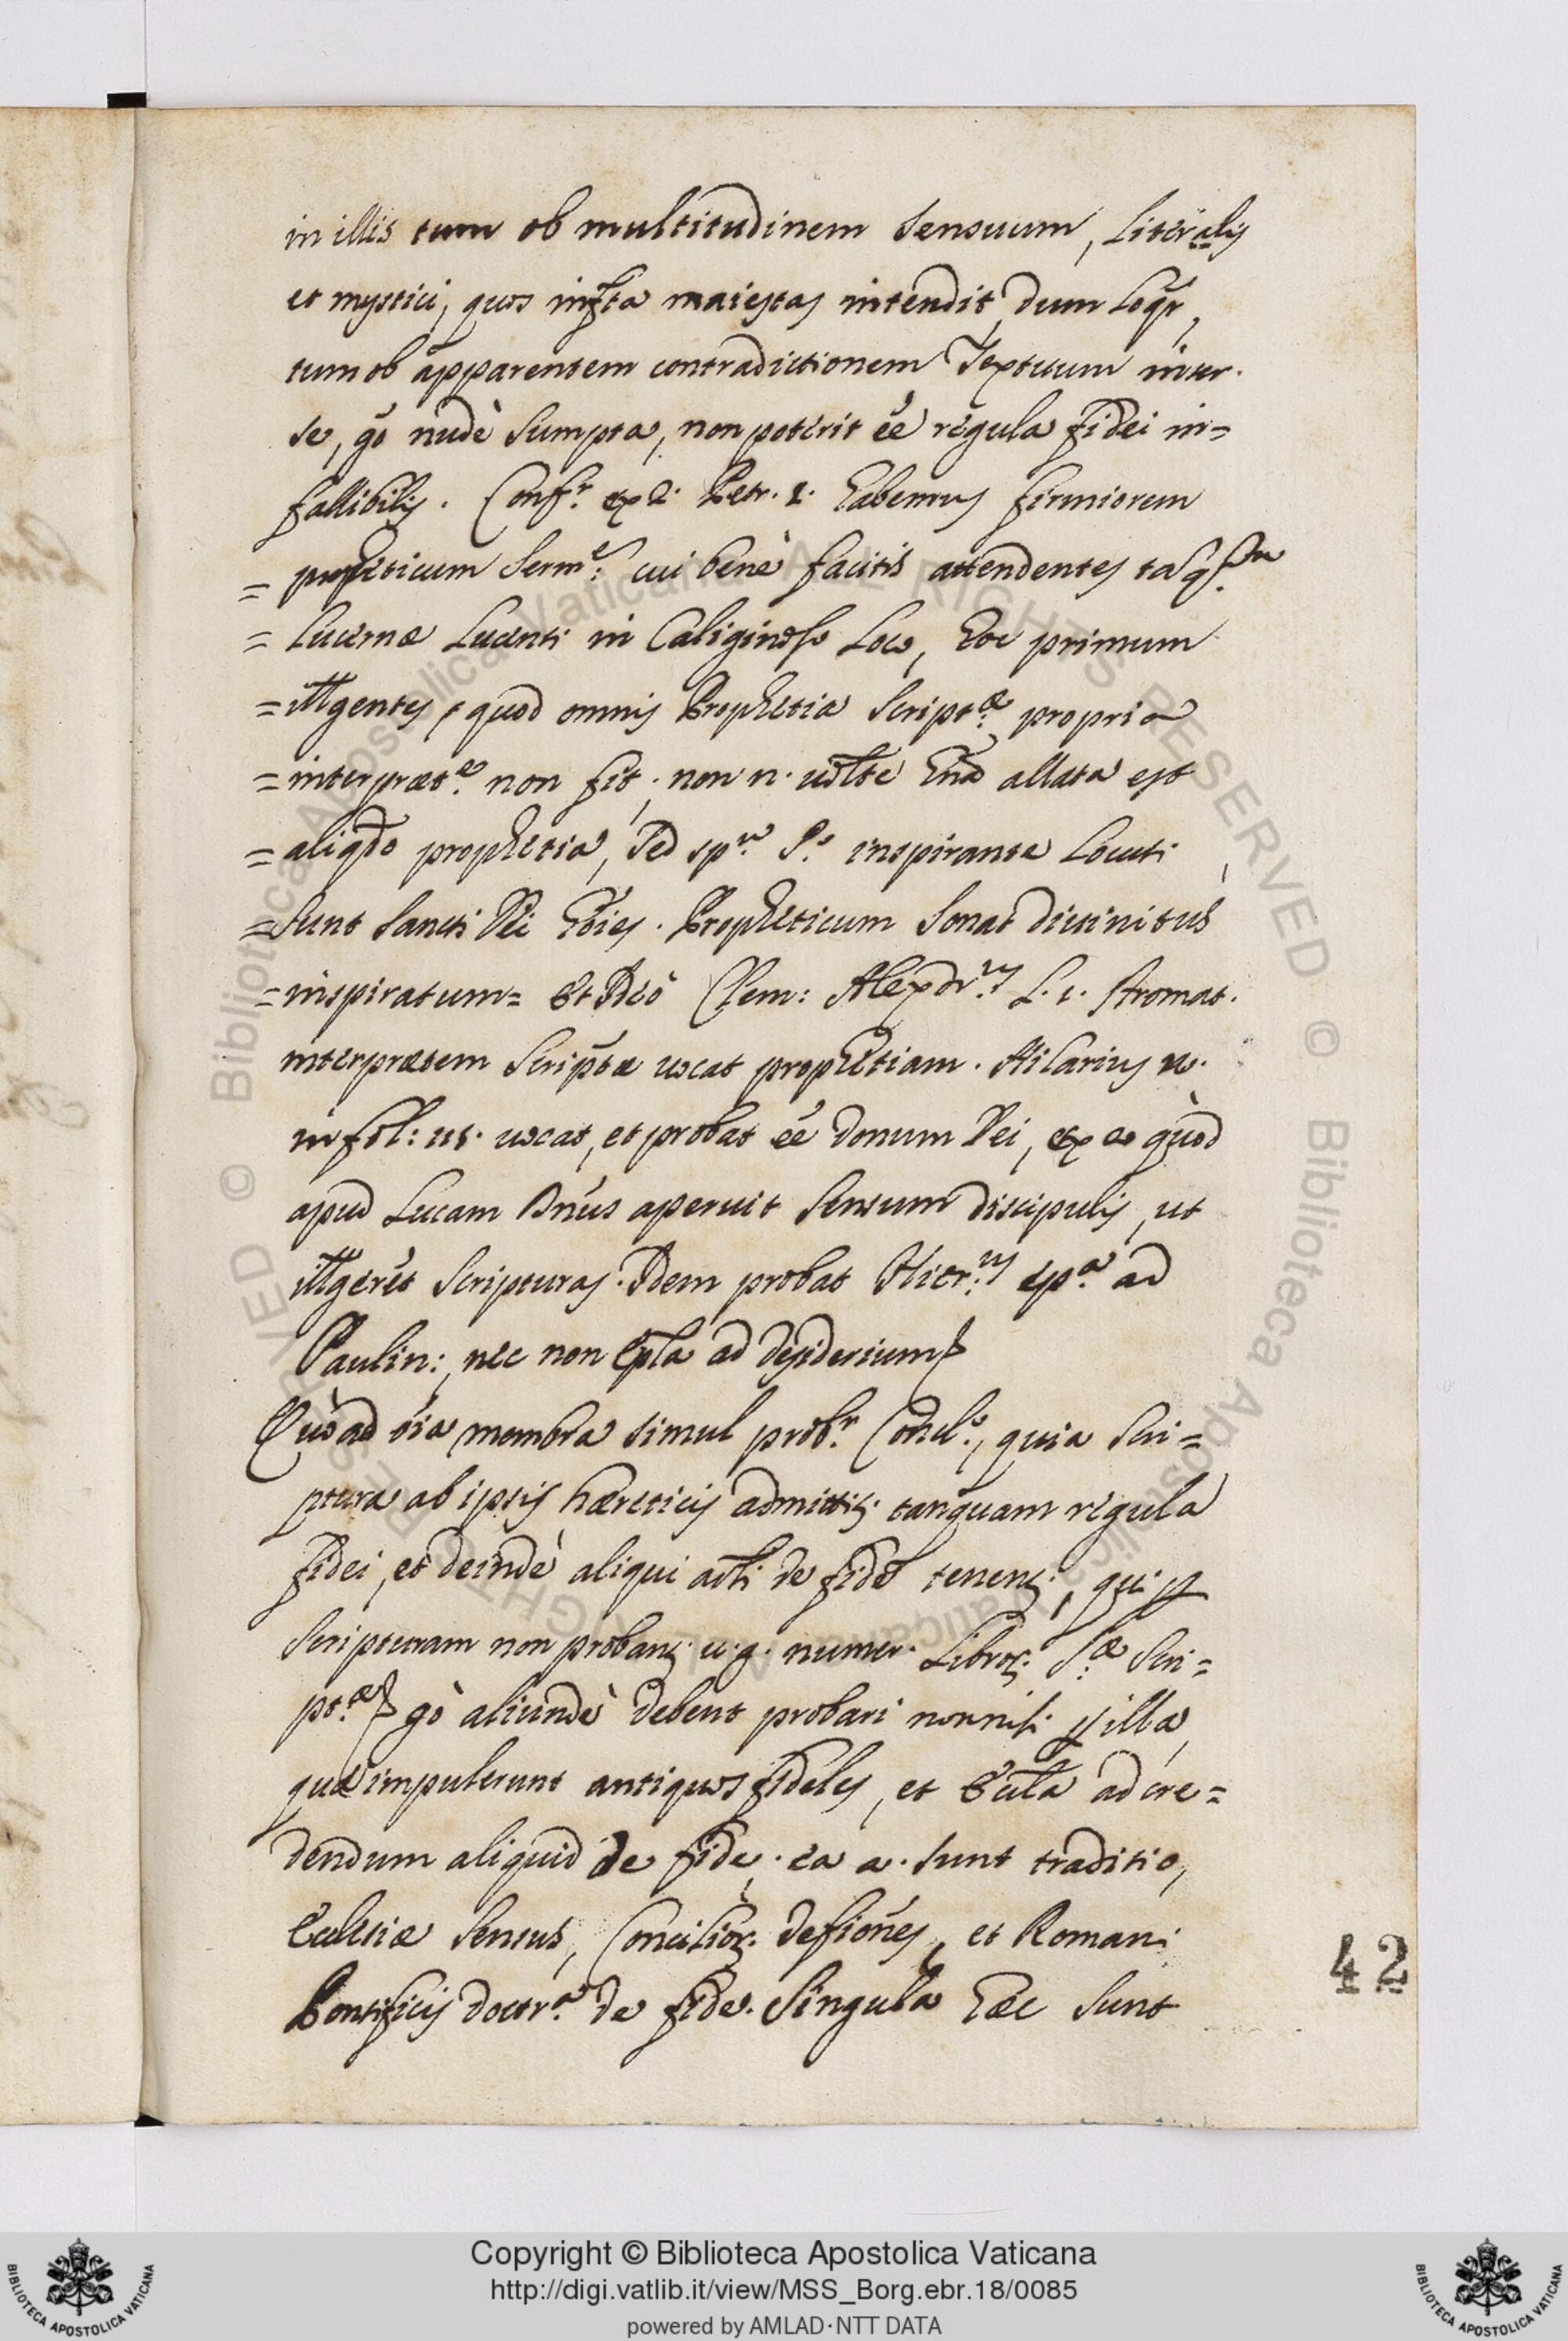 in illis tum ob multitudinem Sensuum, Literalis
et mystici, quos infta maiestas intendit dum Loqr,
tum ob apparentem contradictionem Textuum inter
se, gò nudè Sumpta, non poterit eé regula fidei in=
fallibilis. Confr. ex 2. Petr. 1. habemus firmiorem
= propheticum Serme: cui benè facitis attendentes
= Lucernæ Lucenti in Caliginoso Loco, hoc primum
= illgentes, quod omnis Prophetia Scriptæ. propria
= interpræte. non fit, non n. uoltè hnã allata est
= aliqdo prophetia, Sed spu. So. inspirante Locuti
= Sunt Sancti Dei hoies. Propheticum Sonat diuinitùs
= inspiratum= Et Ideò Clem: Alexdrus. L. 1. Stromat.
interprætem Scriptæ uocat prophetiam. Hilarius u.
in psl: 118. uocat, et probat eé donum Dei, ex eo quòd
apud Lucam Dnus aperuit Sensum discipulis, ut
illgerét Scripturas. Idem probat Hierus. epa. ad
Paulin:, nec non Epla ad desiderium
Quòad oia membra simul probr. Conclo., quia Scri=
ptura ab ipsis hæreticis admittitr. tanquam regula
fidei, et deindè aliqui artli de fide tenentr., qui per
Scripturam non probantr. u.g. numer. Libror. Sæ. Scri=
ptæ. gò aliundè debent probari nonnisi per illa,
quæ impulerunt antiquos fideles, et Eccla ad cre=
dendum aliquid de fide, ea a. Sunt traditio,
Ecclesiæ Sensus, Concilior. defiones, et Romani
Pontificis doctra. de fide. Singula hæc Sunt
42
Copyright © Biblioteca Apostolica Vaticana
http://digi.vatlib.it/view/MSS_Borg.ebr.18/0085
powered by AMLAD·NTT DATA
BIBLIOTECA APOSTOLICA VATICANA
BIBLIOTECA APOSTOLICA VATICANA